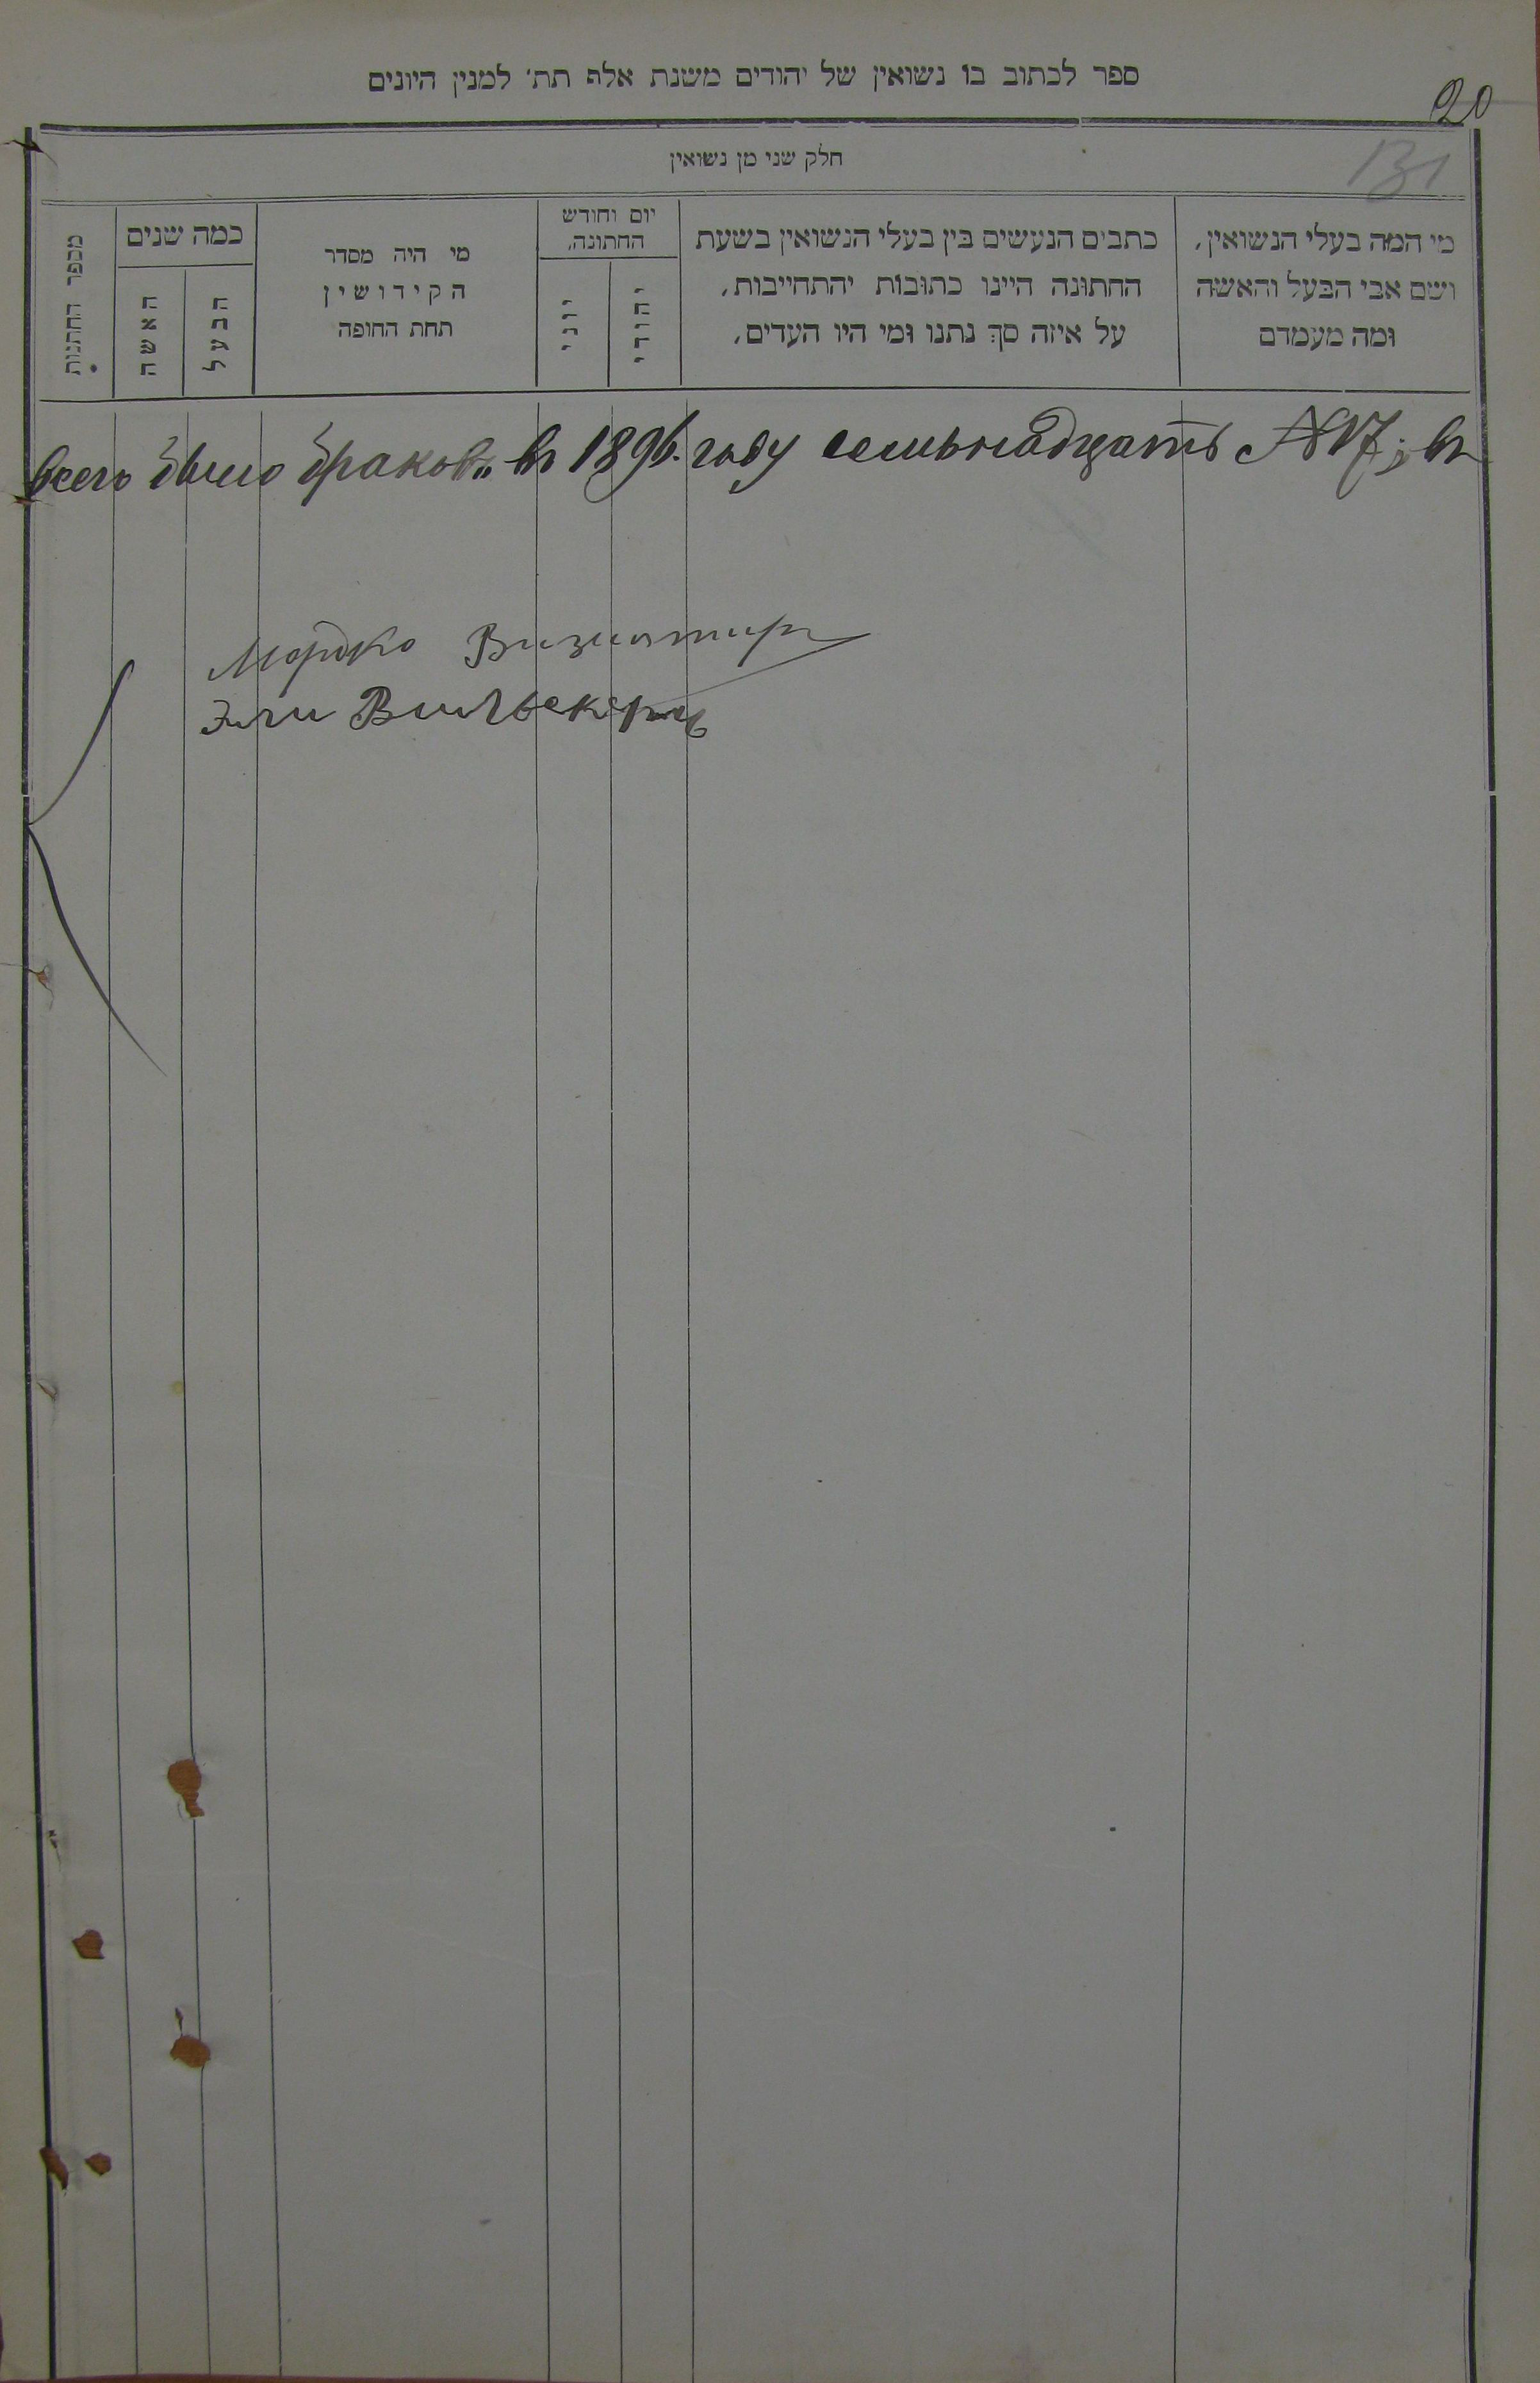 ספר לכתוב בו נשואין של יהודים משנת אלף תת׳ למנין היונים
20
חלק שני מן נשואין
131
מי המה בעלי הנשואין,
ושם אבי הבעל והאשה
ומה מעמדם
כתבים הנעשים בין בעלי הנשואין בשעת
החתונה היינו כתובות יהתחייבות,
על איזה סך נתנו ומי היו העדים,
יום וחודש
החתונה,
יהודי
יוני
מי היה מסדר
הקידושין
תחת החופה
כמה שנים
הבעל
האשה
מספר החתנות
всего было браковъ въ 1896. году семьнадцать №17; въ
Мордко
Эли